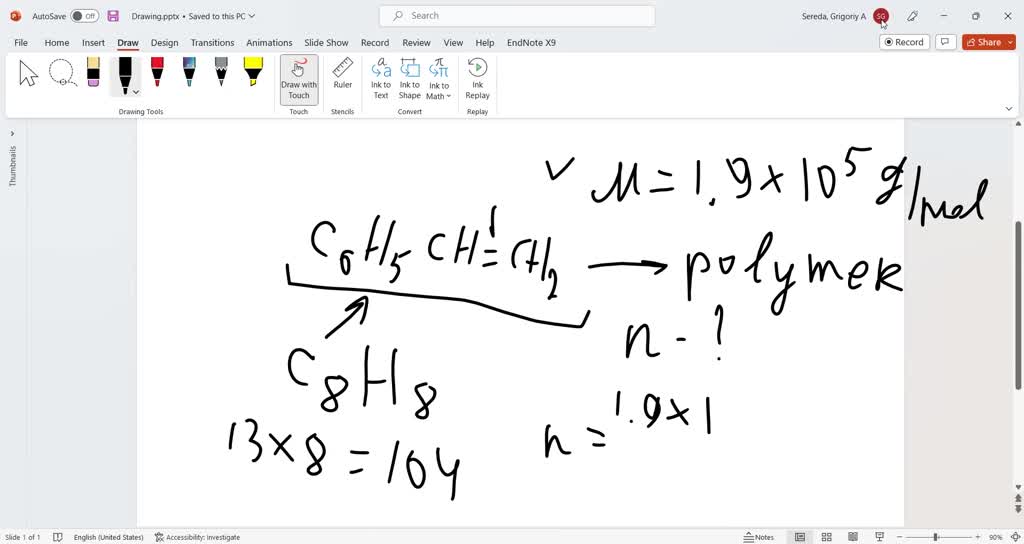 AutoSave Off Drawing.pptx • Saved to this PC Search Sereda, Grigoriy A SG
File Home Insert Draw Design Transitions Animations Slide Show Record Review View Help EndNote X9 Record Share
Draw with Touch Ruler Ink to Text Ink to Shape Ink to Math Ink Replay
Drawing Tools Touch Stencils Convert Replay
Thumbnails
M = 1.9 × 10⁵ g/mol
C₆H₅CH=CH₂ → polymer
n - ?
C₈H₈
n = 1.9 × 1
13 × 8 = 104
Slide 1 of 1 English (United States) Accessibility: Investigate Notes 90%